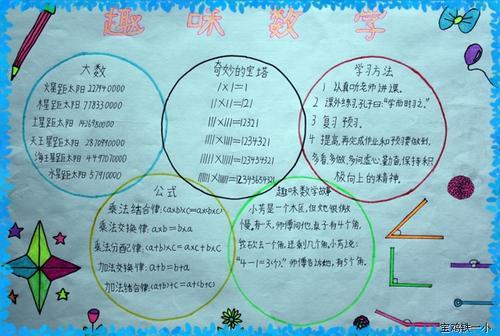 趣味数学
大数
火星距太阳 227940000
木星距太阳 778330000
土星距太阳 1426980000
天王星距太阳 2870990000
海王星距太阳 4497070000
水星距太阳 57910000
奇妙的宝塔
1×1=1
11×11=121
111×111=12321
1111×1111=1234321
11111×11111=123454321
111111×111111=12345654321
学习方法
1 以真听老师讲课。
2 课外练习,孔子曰:“学而时习之。”
3 复习 预习。
4 提高,再完成作业和预习要做到,
多看多做,多问虚心,勤奋,保持积
极向上的精神。
公式
乘法结合律:(a×b)×c=a×(b×c)
乘法交换律:a×b=b×a
乘法分配律:(a+b)×c=a×c+b×c
加法交换律:a+b=b+a
加法结合律:(a+b)+c=a+(b+c)
趣味数学故事
小芳是一个木匠,但她很傲
慢。有一天,师傅问他,桌子有4个角,
我砍去一个角,还剩几个角,小芳说:
“4-1=3(个)。”师傅告诉她,有5个角。
宝鸡铁一小